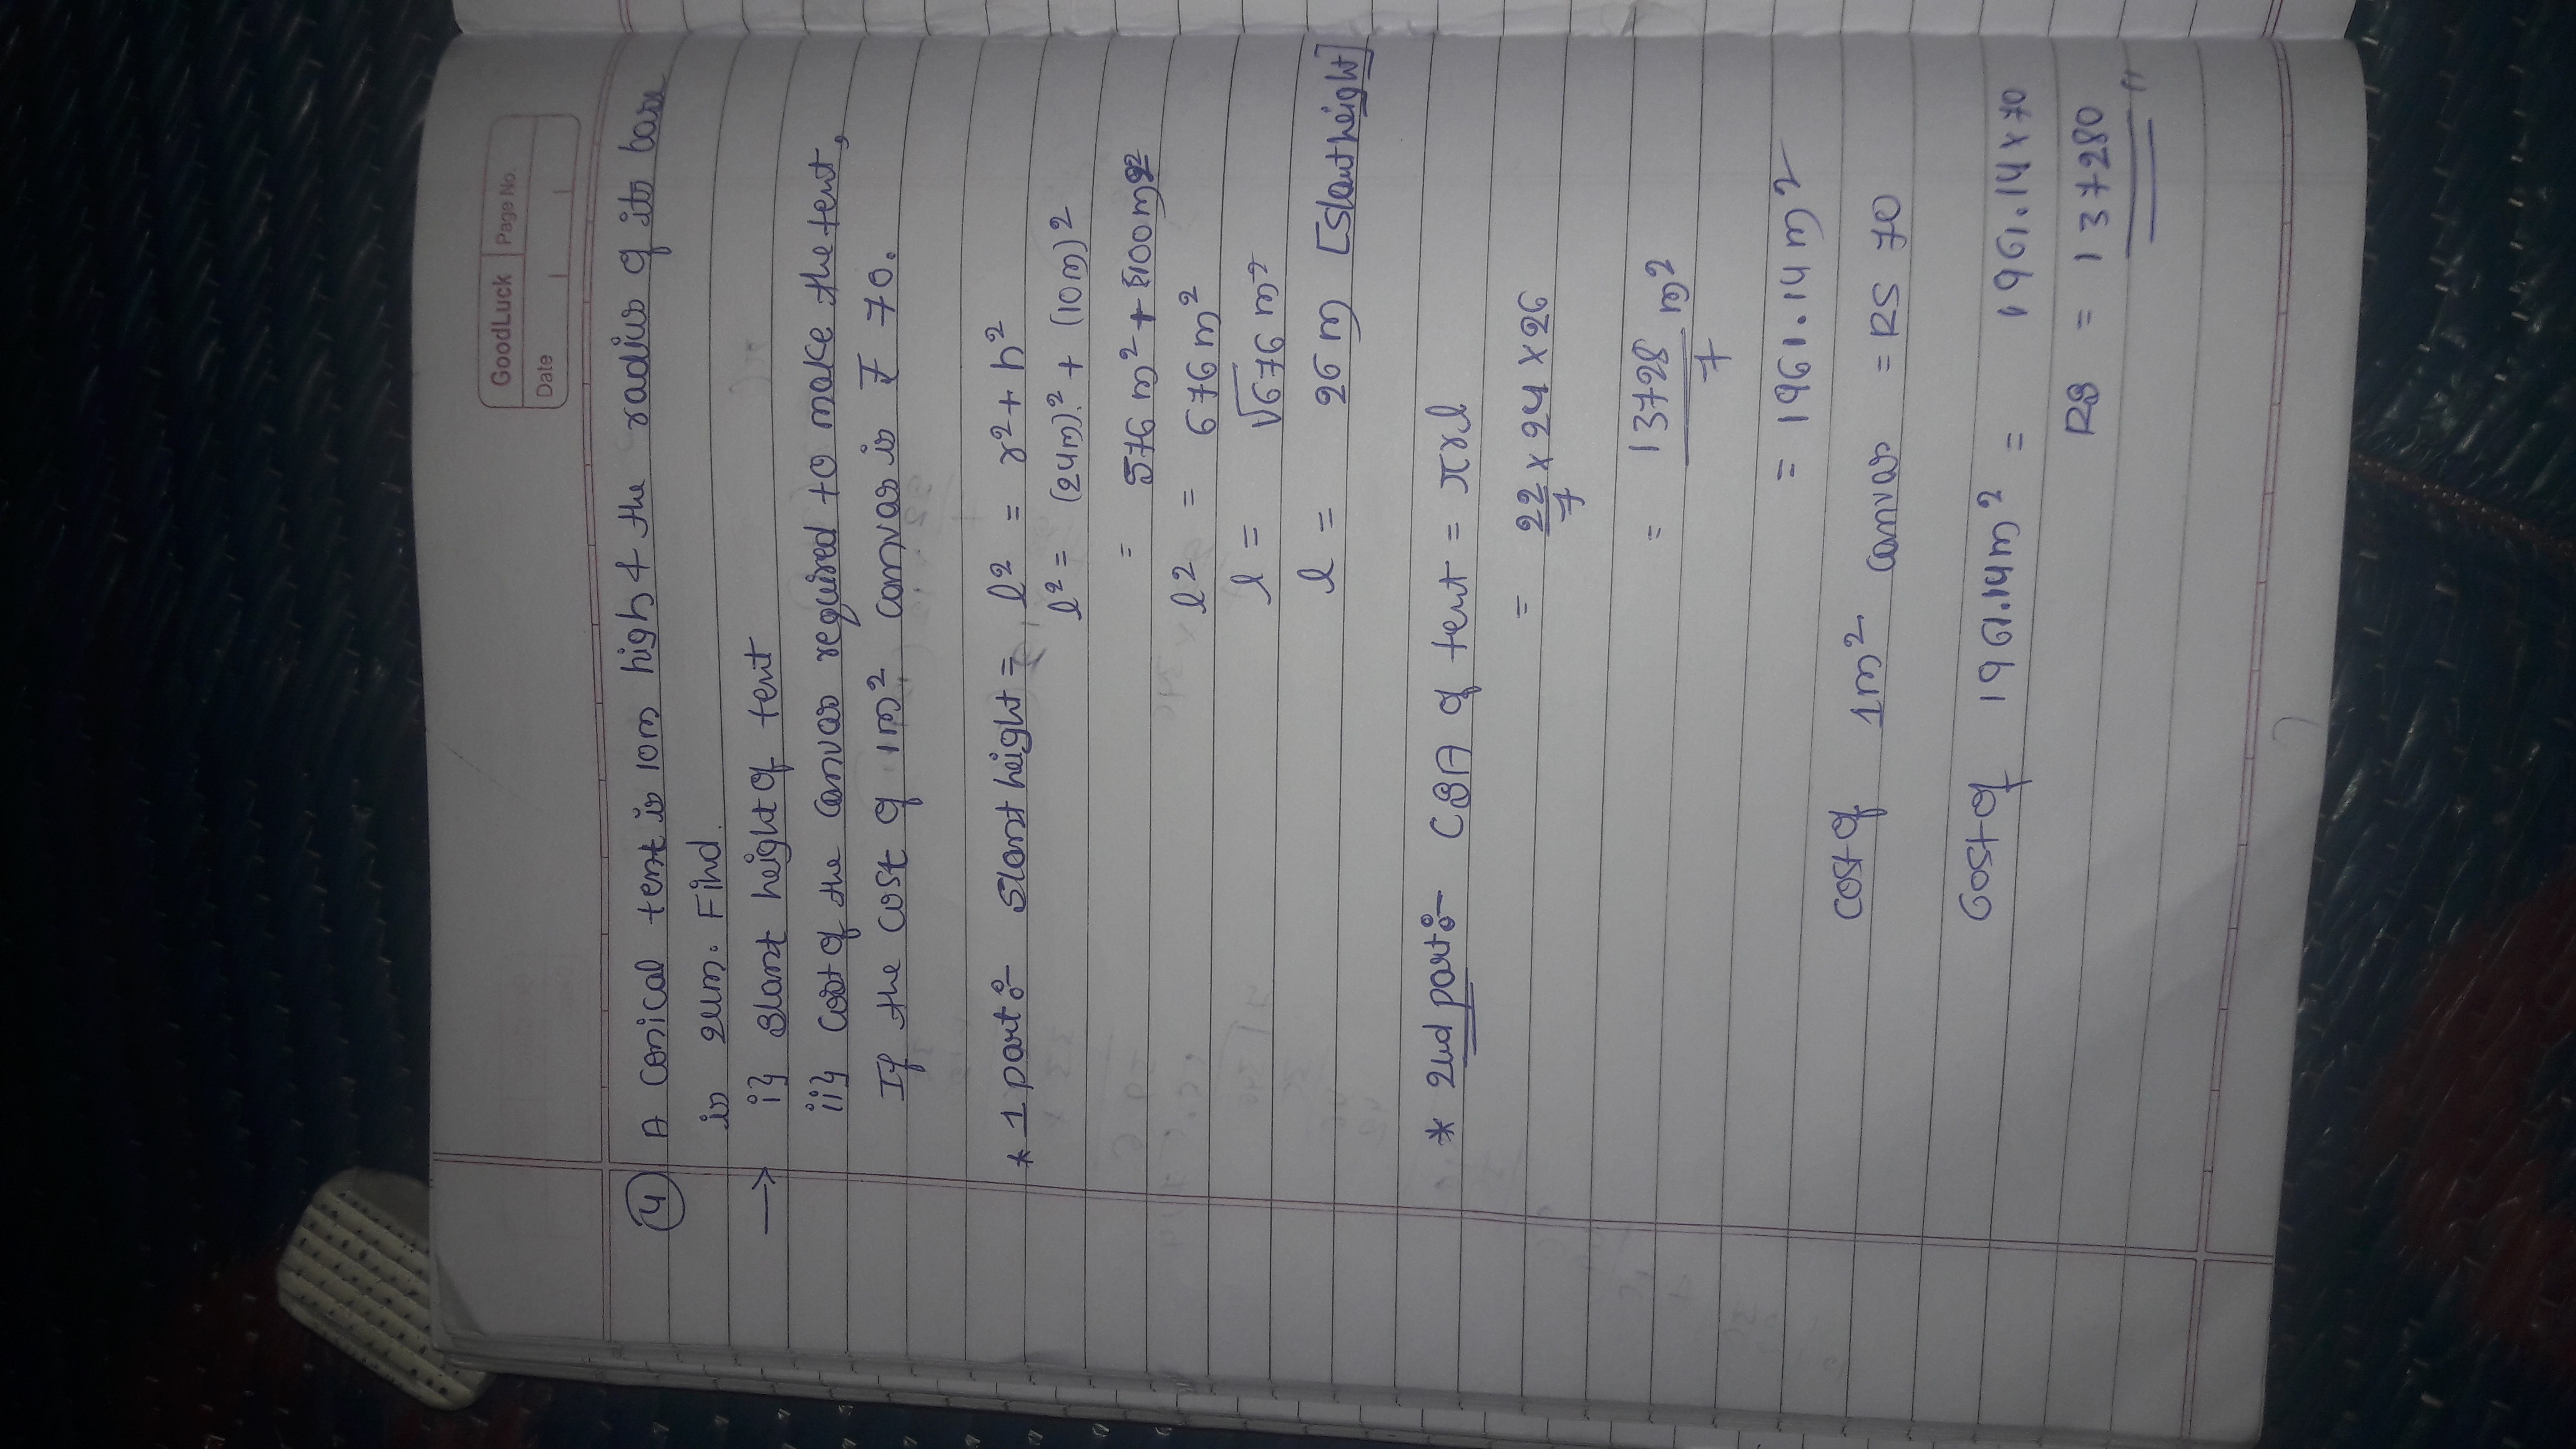 GoodLuck Page No.
Date
④ A conical tent is 10m high & the radius of its base
is 24m. Find.
→ i} Slant height of tent
ii} cost of the canvas required to make the tent,
If the cost of 1m² canvas is ₹ 70.
* 1 part:- Slant height = l² = r² + h²
l² = (24m)² + (10m)²
= 576 m² + 100m²
l² = 676 m²
l = √676 m²
l = 26 m [Slant height]
* 2nd part:- CSA of tent = πrl
= 22/7 × 24 × 26
= 13728/7 m²
= 1961.14 m²
cost of 1m² canvas = RS 70
Cost of 1961.14m² = 1961.14 × 70
RS = 137280